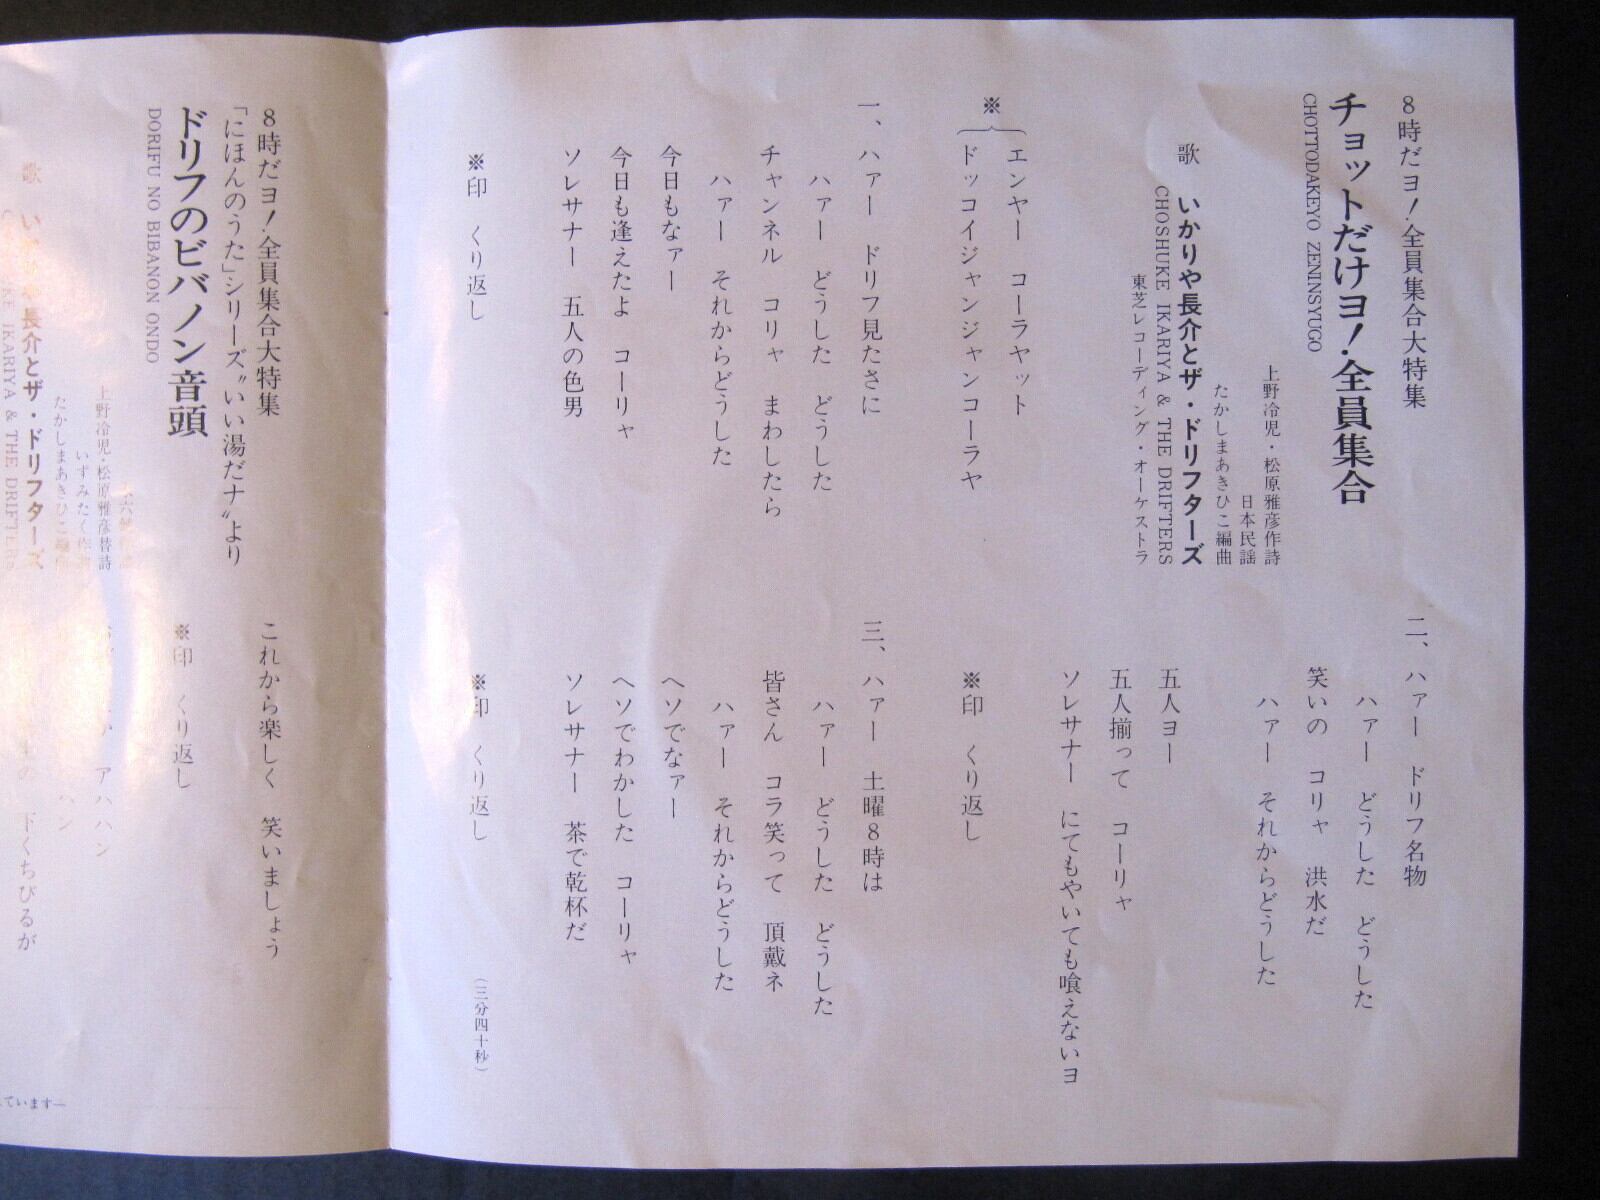 8時だヨ!全員集合大特集
チョットだけヨ!全員集合
CHOTTODAKEYO ZENINSYUGO
上野冷児・松原雅彦作詩
日本民謡
たかしまあきひこ編曲
歌 いかりや長介とザ・ドリフターズ
CHOSHUKE IKARIYA & THE DRIFTERS
東芝レコーディング・オーケストラ
※
エンヤー コーラヤット
ドッコイジャンジャンコーラヤ
一、ハァー ドリフ見たさに
ハァー どうした どうした
チャンネル コリャ まわしたら
ハァー それからどうした
今日もなァー
今日も逢えたよ コーリャ
ソレサナー 五人の色男
※印 くり返し
二、ハァー ドリフ名物
ハァー どうした どうした
笑いの コリャ 洪水だ
ハァー それからどうした
五人ヨー
五人揃って コーリャ
ソレサナー にてもやいても喰えないヨ
※印 くり返し
三、ハァー 土曜8時は
ハァー どうした どうした
皆さん コラ笑って 頂戴ネ
ハァー それからどうした
ヘソでなァー
ヘソでわかした コーリャ
ソレサナー 茶で乾杯だ
※印 くり返し
(三分四十秒)
8時だヨ!全員集合大特集
「にほんのうた」シリーズ〝いい湯だナ〟より
ドリフのビバノン音頭
DORIFU NO BIBANON ONDO
上野冷児・松原雅彦替詩
いずみたく作
たかしまあきひこ編
歌 い 長介とザ・ドリフターズ
KE IKARIYA & THE DRIFTERS
これから楽しく 笑いましょう
※印 くり返し
ア アハハン
ハン
の 下くちびるが
ています—